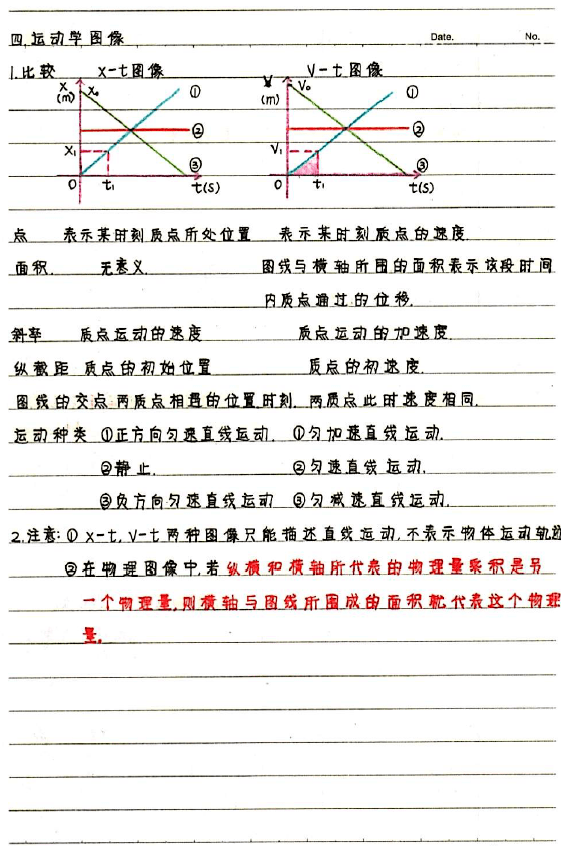 四.运动学图像 Date. No.
1.比较 x-t图像 V-t图像
x (m) x₀ ① ② x₁ ③ 0 t₁ t(s)
V (m) V₀ ① ② V₁ ③ 0 t₁ t(s)
点 表示某时刻质点所处位置 表示某时刻质点的速度.
面积. 无意义. 图线与横轴所围的面积表示该段时间
内质点通过的位移.
斜率 质点运动的速度 质点运动的加速度.
纵截距 质点的初始位置 质点的初速度.
图线的交点 两质点相遇的位置.时刻. 两质点此时速度相同.
运动种类 ①正方向匀速直线运动. ①匀加速直线运动.
②静止. ②匀速直线运动.
③负方向匀速直线运动 ③匀减速直线运动.
2.注意:① x-t, V-t两种图像只能描述直线运动,不表示物体运动轨迹
②在物理图像中,若纵横和横轴所代表的物理量乘积是另
一个物理量,则横轴与图线所围成的面积就代表这个物理
量.